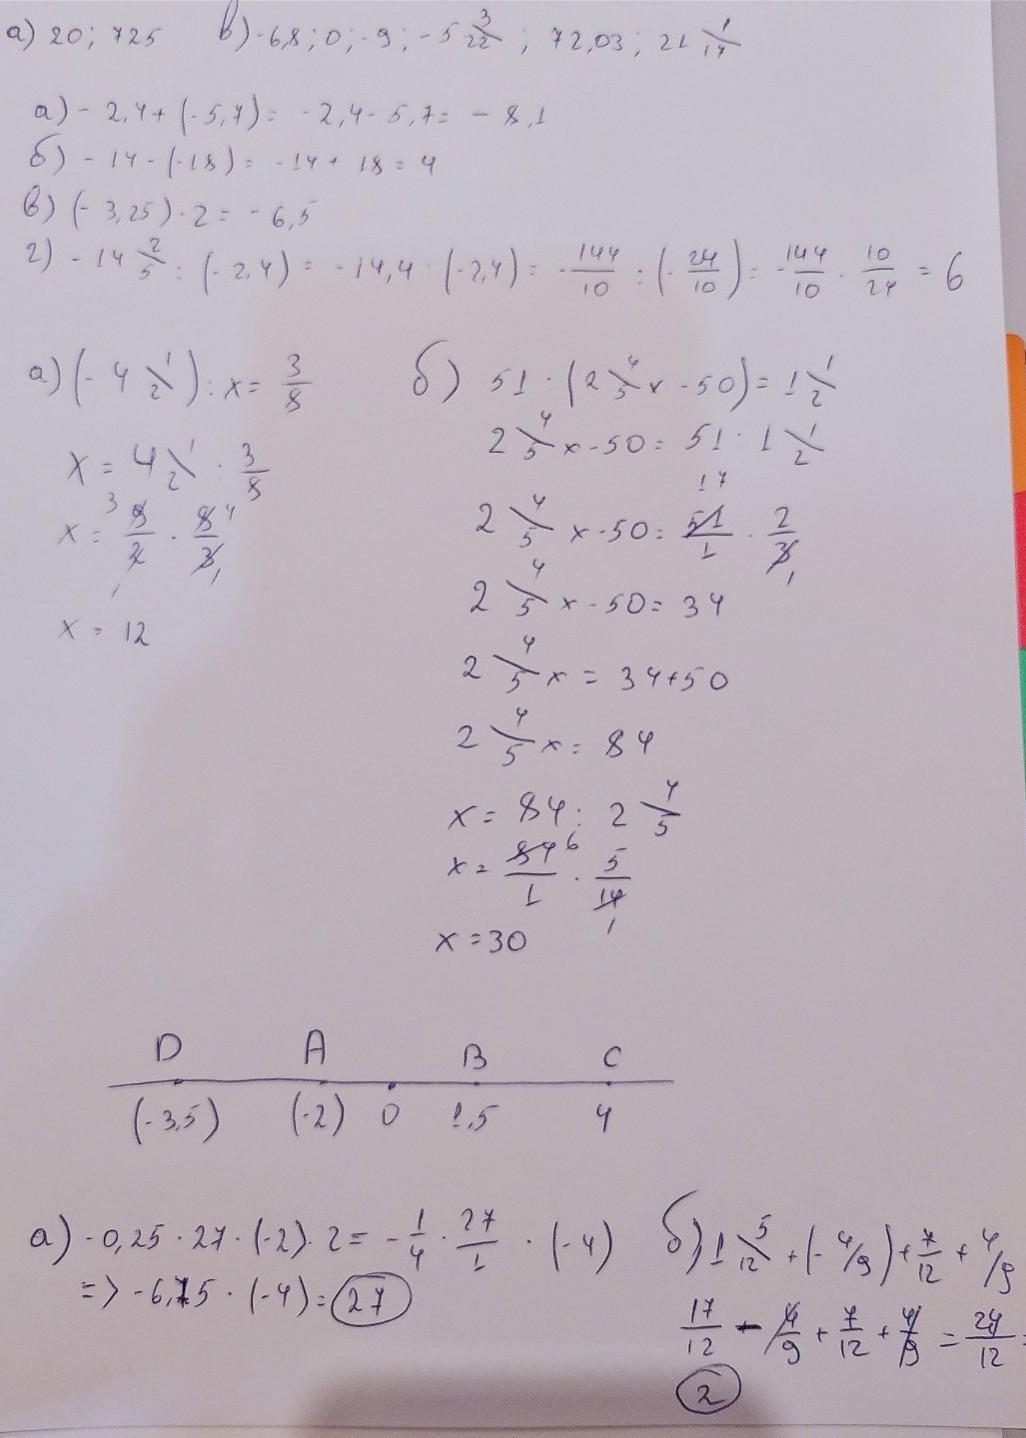 а) 20; 725 в) -6,8; 0; -9; -5 3/22; 72,03; 21 1/17
а) - 2,4 + (- 5,7) = - 2,4 - 5,7 = - 8,1
б) - 14 - (-18) = -14 + 18 = 4
в) (- 3,25) · 2 = - 6,5
г) - 14 2/5 : (- 2,4) = -14,4 : (-2,4) = - 144/10 : (- 24/10) = - 144/10 · 10/24 = 6
а) (- 4 1/2) : x = 3/8
x = 4 1/2 : 3/8
x = 9/2 · 8/3
x = 12
б) 51 : (2 4/5 x - 50) = 1 1/2
2 4/5 x - 50 = 51 : 1 1/2
2 4/5 x - 50 = 51/1 · 2/3
2 4/5 x - 50 = 34
2 4/5 x = 34 + 50
2 4/5 x = 84
x = 84 : 2 4/5
x = 84/1 · 5/14
x = 30
D A B C
(- 3,5) (-2) 0 1,5 4
а) - 0,25 · 27 · (-2) · 2 = - 1/4 · 27/1 · (- 4)
=> - 6,75 · (- 4) = 27
б) 1 5/12 + (- 4/9) + 7/12 + 4/9
17/12 - 4/9 + 7/12 + 4/9 = 24/12 =
2